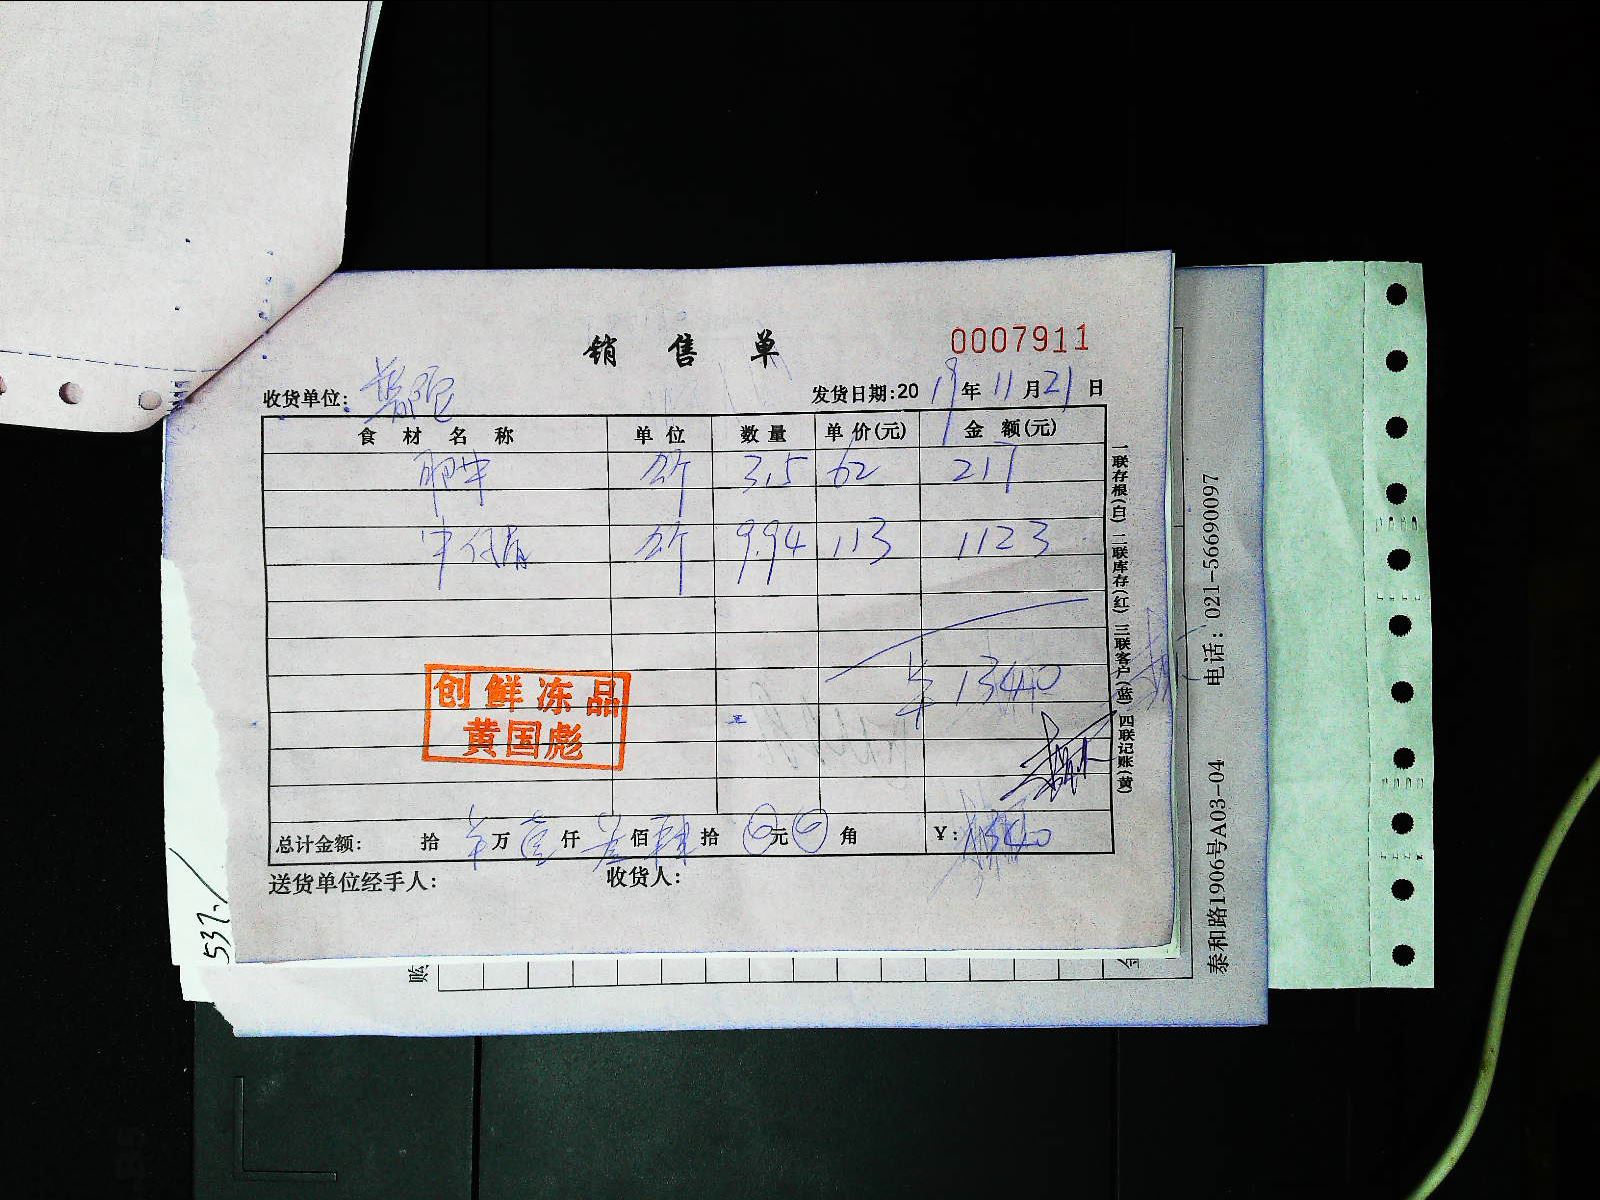 销售单 0007911
收货单位: 发货日期:2019年11月21日
食材名称 单位 数量 单价(元) 金额(元)
肥牛 公斤 3.5 62 217
牛仔骨 公斤 9.94 113 1123
¥1340
创鲜冻品
黄国彪
总计金额: 拾 ¥万壹仟叁佰肆拾 0元0角 ¥: 1340
送货单位经手人: 收货人:
一联存根(白) 二联库存(红) 三联客户(蓝) 四联记账(黄)
泰和路1906号A03-04 电话: 021-56690097
537.
账